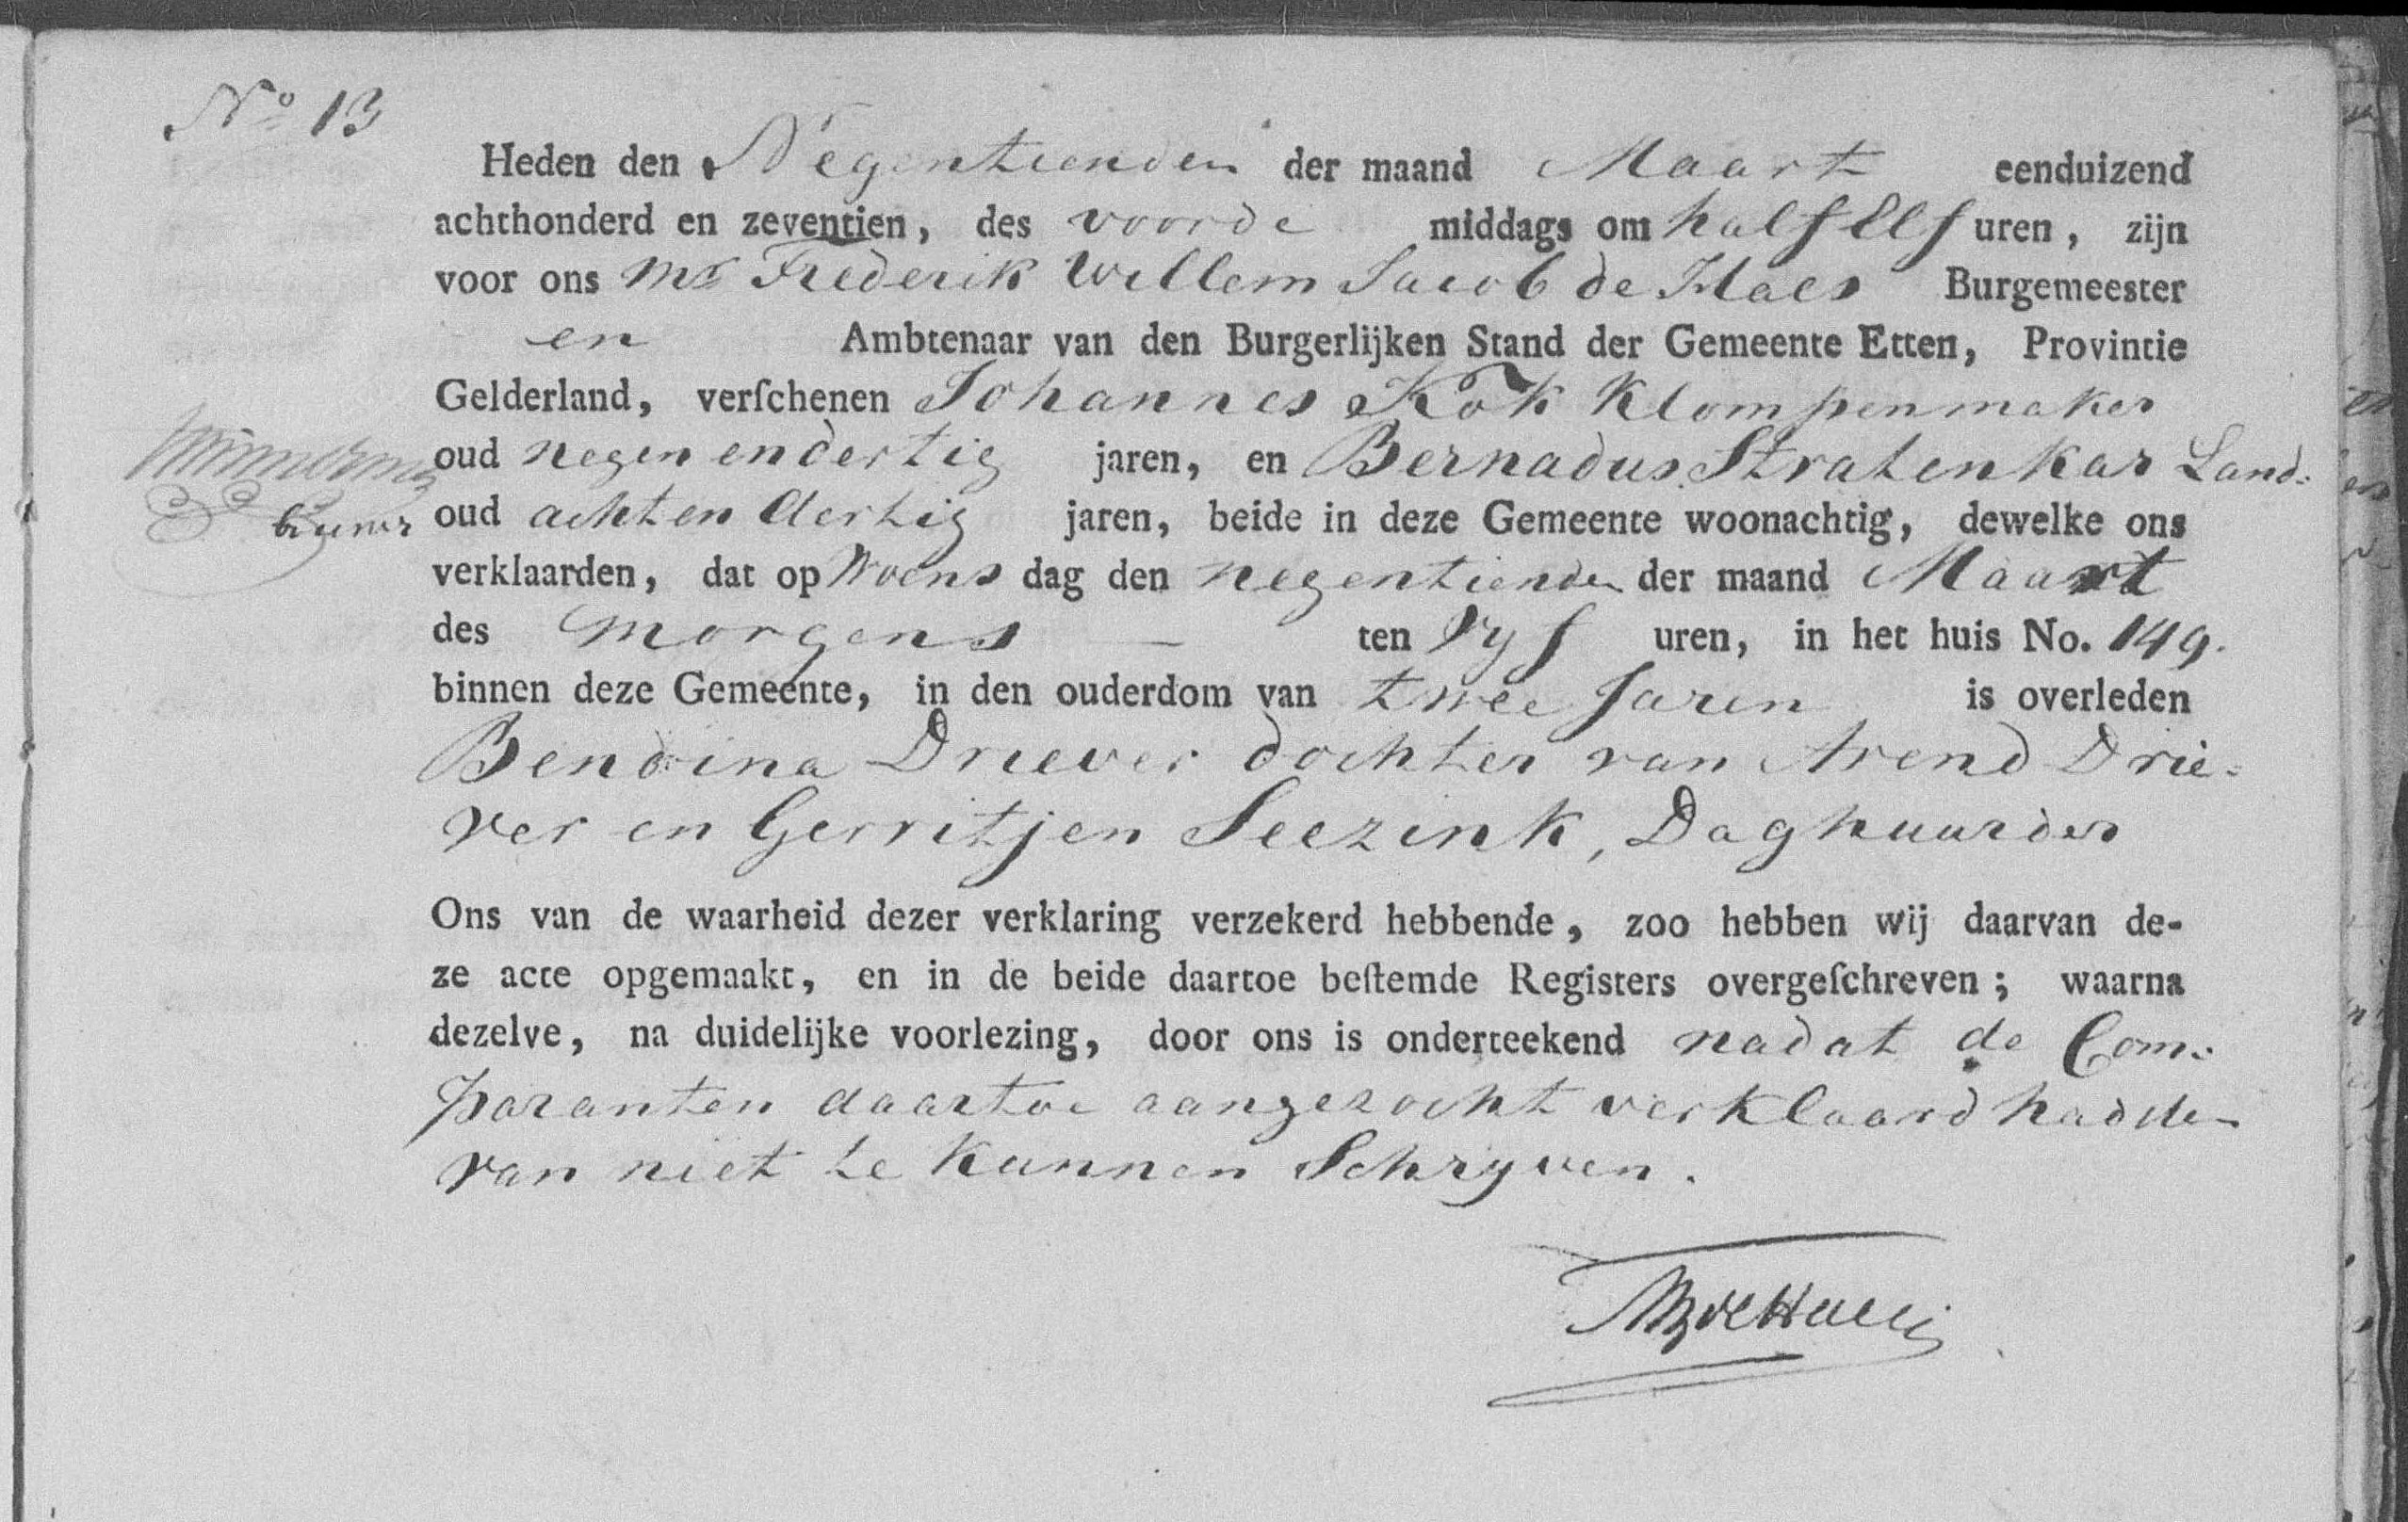 No 13
Heden den Negentienden der maand Maart eenduizend
achthonderd en zeventien, des voorde middags om half Elf uren, zijn
voor ons Mr Frederik Willem Jacob de Haes Burgemeester
en Ambtenaar van den Burgerlijken Stand der Gemeente Etten, Provintie
Gelderland, verſchenen Johannes Kok Klompenmaker
oud negen en dertig jaren, en Bernadus Stratenkar Land:
bouwer oud acht en dertig jaren, beide in deze Gemeente woonachtig, dewelke ons
verklaarden, dat op Woens dag den negentienden der maand Maart
des morgens — ten Vyf uren, in het huis No. 149.
binnen deze Gemeente, in den ouderdom van twee Jaren is overleden
Bendina Driever dochter van Arend Drie=
ver en Gerritjen Seezink, Daghuurder
Ons van de waarheid dezer verklaring verzekerd hebbende, zoo hebben wij daarvan de-
ze acte opgemaakt, en in de beide daartoe beſtemde Registers overgeſchreven; waarna
dezelve, na duidelijke voorlezing, door ons is onderteekend nadat de Com:
paranten daartoe aangezocht verklaard hadden
van niet te kunnen Schryven.
de Haes